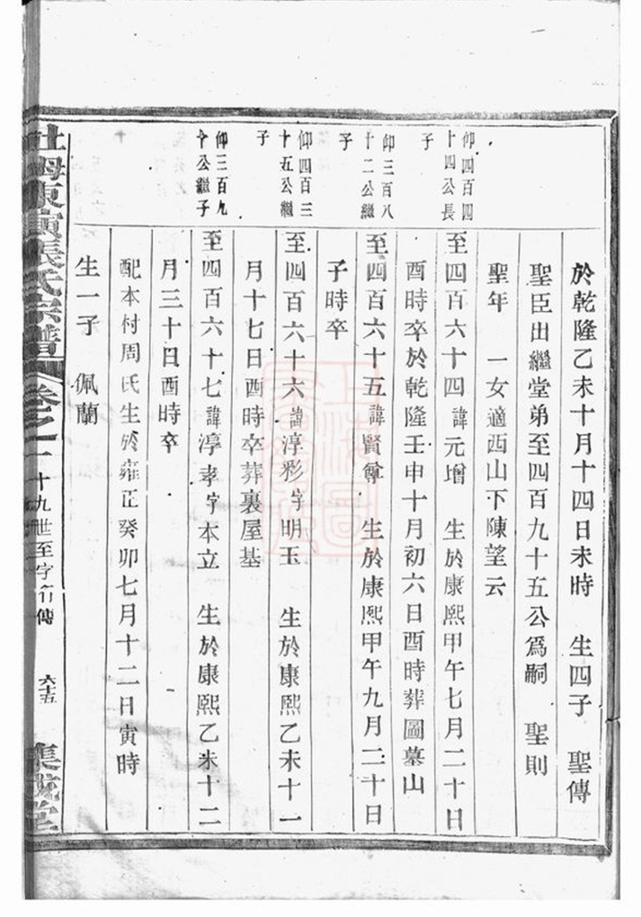 於乾隆乙未十月十四日未時 生四子 聖傳
聖臣出繼堂弟至四百九十五公爲嗣 聖則
聖年 一女適西山下陳望云
仰四百四
十四公長
子
至四百六十四諱元增 生於康熙甲午七月二十日
酉時卒於乾隆壬申十月初六日酉時葬圖墓山
仰三百八
十二公繼
子
至四百六十五諱賢 生於康熙甲午九月二十日
子時卒
仰四百三
十五公繼
子
至四百六十六諱淳彩字明玉 生於康熙乙未十一
月十七日酉時卒葬裏屋基
仰三百九
十公繼子
至四百六十七諱淳孝字本立 生於康熙乙未十二
月三十日酉時卒
配本村周氏生於雍正癸卯七月十二日寅時
生一子 佩蘭
東 張氏宗譜 卷之一 十九世至字行傳 六十五 集 堂